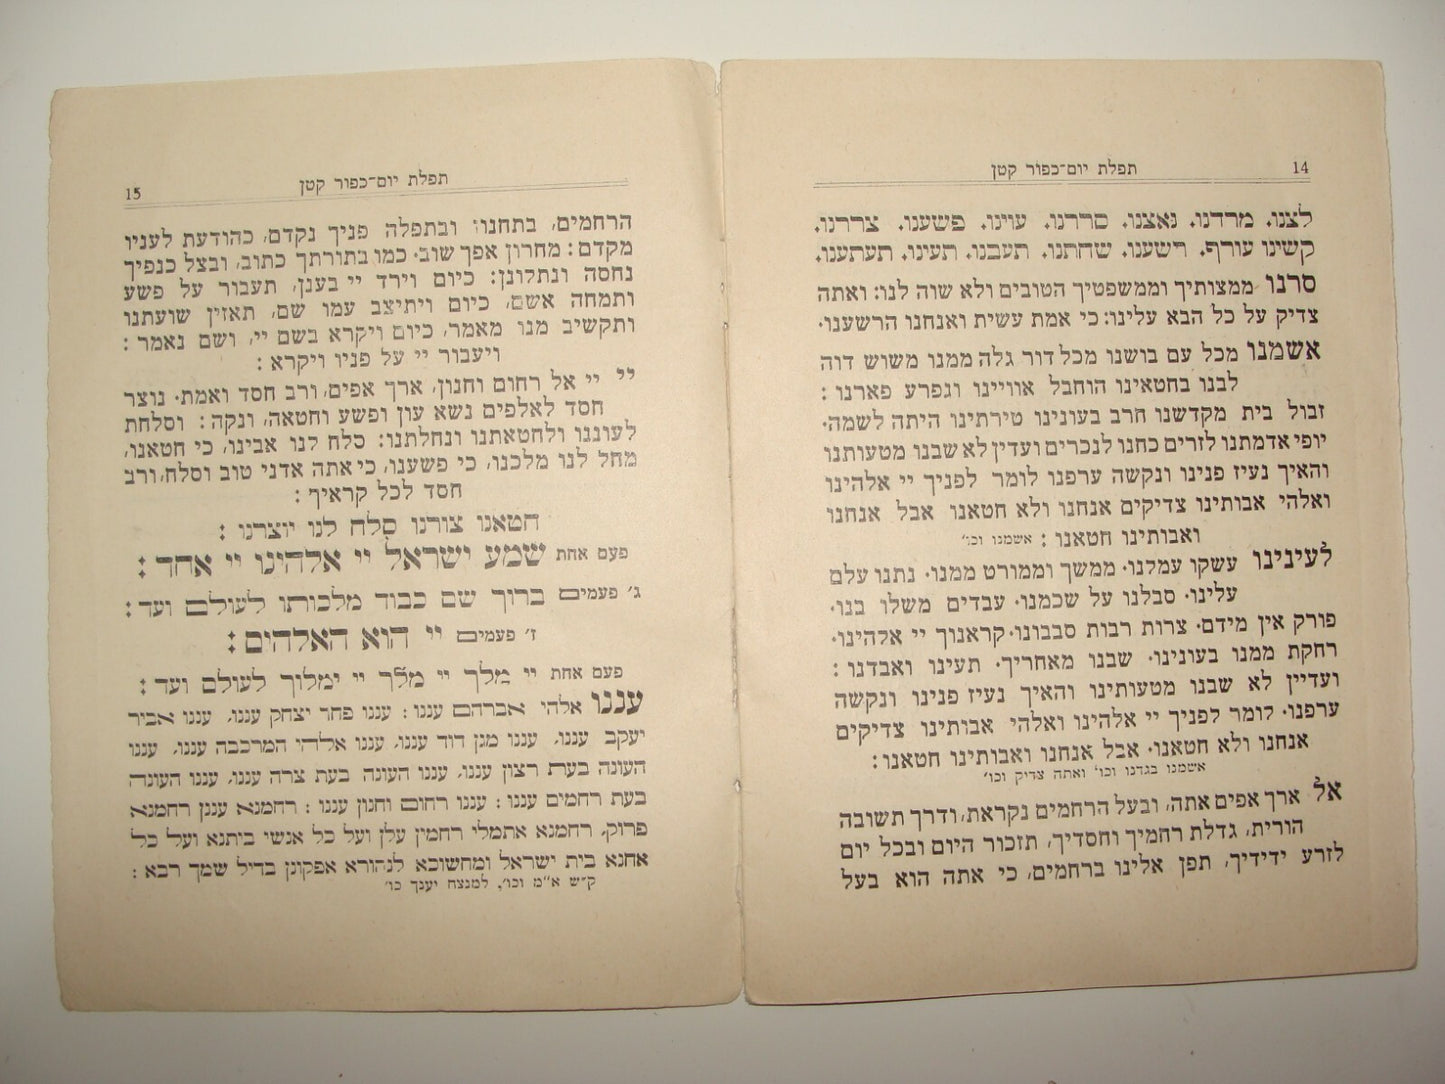 14
תפלת יום־כפור קטן
לצנו. מרדנו. נאצנו. סררנו. עוינו. פשענו. צררנו.
קשינו עורף. רשענו. שחתנו. תעבנו. תעינו. תעתענו.
סרנו ממצותיך וממשפטיך הטובים ולא שוה לנו: ואתה
צדיק על כל הבא עלינו: כי אמת עשית ואנחנו הרשענו.
אשמנו מכל עם בושנו מכל דור גלה ממנו משוש דוה
לבנו בחטאינו הוחבל אוויינו ונפרע פארנו:
זבול בית מקדשנו חרב בעונינו טירתינו היתה לשמה.
יופי אדמתנו לזרים כחנו לנכרים ועדין לא שבנו מטעותנו
והאיך נעיז פנינו ונקשה ערפנו לומר לפניך יי אלהינו
ואלהי אבותינו צדיקים אנחנו ולא חטאנו אבל אנחנו
ואבותינו חטאנו: אשמנו וכו׳
לעינינו עשקו עמלנו. ממשך וממורט ממנו. נתנו עלם
עלינו. סבלנו על שכמנו. עבדים משלו בנו.
פורק אין מידם. צרות רבות סבבונו. קראנוך יי אלהינו.
רחקת ממנו בעונינו. שבנו מאחריך. תעינו ואבדנו:
ועדיין לא שבנו מטעותינו והאיך נעיז פנינו ונקשה
ערפנו. לומר לפניך יי אלהינו ואלהי אבותינו צדיקים
אנחנו ולא חטאנו. אבל אנחנו ואבותינו חטאנו:
אשמנו בגדנו וכו׳ ואתה צדיק וכו׳
אל ארך אפים אתה, ובעל הרחמים נקראת, ודרך תשובה
הורית, גדלת רחמיך וחסדיך, תזכור היום ובכל יום
לזרע ידידיך, תפן אלינו ברחמים, כי אתה הוא בעל
תפלת יום־כפור קטן
15
הרחמים, בתחנון ובתפלה פניך נקדם, כהודעת לעניו
מקדם: מחרון אפך שוב. כמו בתורתך כתוב, ובצל כנפיך
נחסה ונתלונן: כיום וירד יי בענן, תעבור על פשע
ותמחה אשם, כיום ויתיצב עמו שם, תאזין שועתנו
ותקשיב מנו מאמר, כיום ויקרא בשם יי, ושם נאמר:
ויעבור יי על פניו ויקרא:
יי יי אל רחום וחנון, ארך אפים, ורב חסד ואמת. נוצר
חסד לאלפים נשא עון ופשע וחטאה, ונקה: וסלחת
לעוננו ולחטאתנו ונחלתנו: סלח לנו אבינו, כי חטאנו,
מחל לנו מלכנו, כי פשענו, כי אתה אדני טוב וסלח, ורב
חסד לכל קראיך:
חטאנו צורנו סלח לנו יוצרנו:
פעם אחת שמע ישראל יי אלהינו יי אחד:
ג׳ פעמים ברוך שם כבוד מלכותו לעולם ועד:
ז׳ פעמים יי הוא האלהים:
פעם אחת יי מלך יי מלך יי ימלוך לעולם ועד:
עננו אלהי אברהם עננו: עננו פחד יצחק עננו, עננו אביר
יעקב עננו, עננו מגן דוד עננו, עננו אלהי המרכבה עננו, עננו
העונה בעת רצון עננו, עננו העונה בעת צרה עננו, עננו העונה
בעת רחמים עננו: עננו רחום וחנון עננו: רחמנא עננן רחמנא
פרוק, רחמנא אתמלי רחמין עלן ועל כל אנשי ביתנא ועל כל
אחנא בית ישראל ומחשוכא לנהורא אפקונן בדיל שמך רבא:
ק״ש א״מ וכו׳, למנצח יענך כו׳